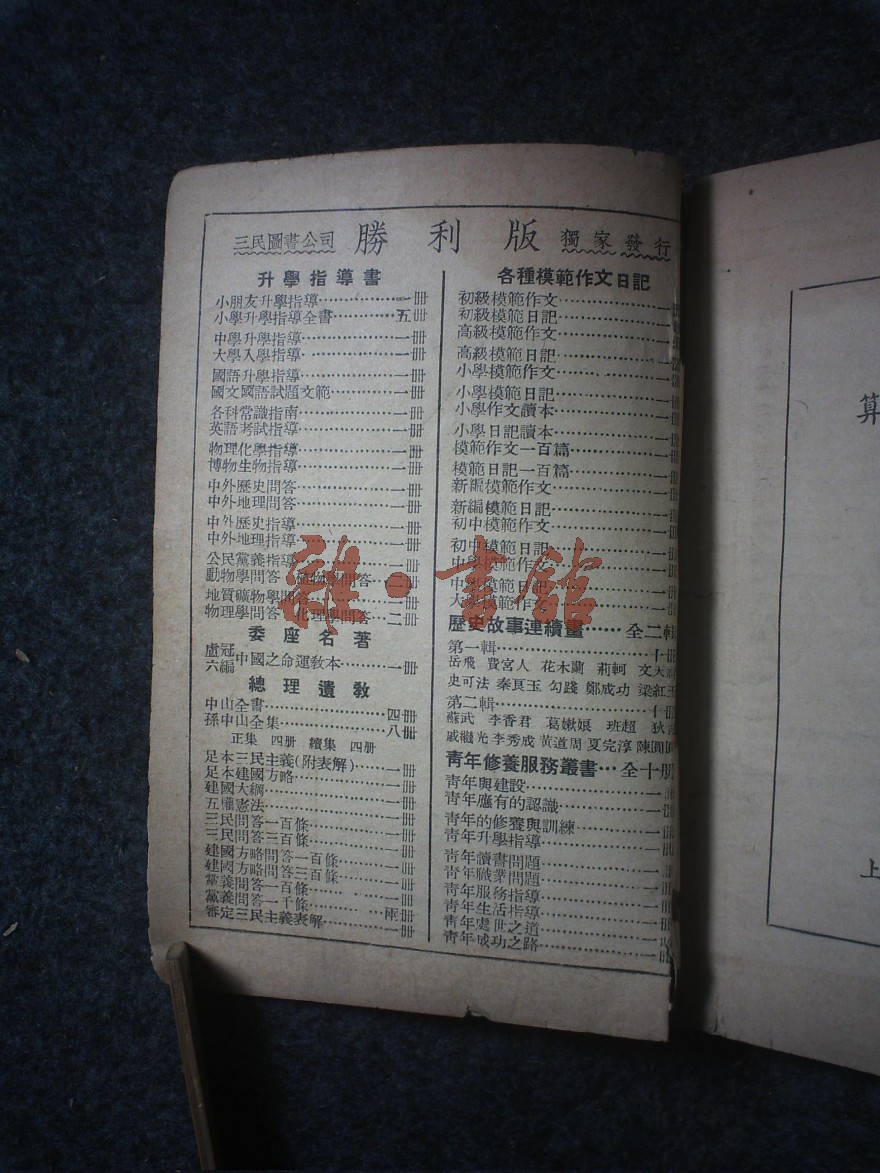 三民圖書公司 勝利版 獨家發行
升學指導書
小朋友升學指導⋯⋯一冊
小學升學指導全書⋯⋯五冊
中學升學指導⋯⋯一冊
大學入學指導⋯⋯一冊
國語升學指導⋯⋯一冊
國文國語試題文範⋯⋯一冊
各科常識指南⋯⋯一冊
英語考試指導⋯⋯一冊
物理化學指導⋯⋯一冊
博物生物指導⋯⋯一冊
中外歷史問答⋯⋯一冊
中外地理問答⋯⋯一冊
中外歷史指導⋯⋯一冊
中外地理指導⋯⋯一冊
公民黨義指導⋯⋯一冊
動物學問答 植物學問答⋯⋯二冊
地質礦物學問答⋯⋯一冊
物理學問答 化理學問答⋯⋯二冊
委座名著
盧冠六編 中國之命運教本⋯⋯一冊
總理遺教
中山全書⋯⋯四冊
孫中山全集⋯⋯八冊
正集 四册 續集 四册
足本三民主義(附表解)⋯⋯一冊
足本建國方略⋯⋯一冊
建國大綱⋯⋯一冊
五權憲法⋯⋯一冊
三民問答一百條⋯⋯一冊
三民問答三百條⋯⋯一冊
建國方略問答一百條⋯⋯一冊
建國方略問答三百條⋯⋯一冊
黨義問答一百條⋯⋯一冊
黨義問答一千條⋯⋯兩冊
審定三民主義表解⋯⋯一冊
各種模範作文日記
初級模範作文⋯⋯一冊
初級模範日記⋯⋯一冊
高級模範作文⋯⋯一冊
高級模範日記⋯⋯一冊
小學模範作文⋯⋯一冊
小學模範日記⋯⋯一冊
小學作文讀本⋯⋯一冊
小學日記讀本⋯⋯一冊
模範作文一百篇⋯⋯一冊
模範日記一百篇⋯⋯一冊
新編模範作文⋯⋯一冊
新編模範日記⋯⋯一冊
初中模範作文⋯⋯一冊
初中模範日記⋯⋯一冊
中學模範作文⋯⋯一冊
中學模範日記⋯⋯一冊
大學模範作文⋯⋯一冊
歷史故事連續畫⋯⋯全二輯
第一輯⋯⋯十冊
岳飛 費宮人 花木蘭 荊軻 文天祥
史可法 秦良玉 勾踐 鄭成功 梁紅玉
第二輯⋯⋯十冊
蘇武 李香君 葛嫩娘 班超 狄
戚繼光 李秀成 黃道周 夏完淳 陳圓圓
青年修養服務叢書⋯全十册
青年與建設⋯⋯一冊
青年應有的認識⋯⋯一冊
青年的修養與訓練⋯⋯一冊
青年升學指導⋯⋯一冊
青年讀書問題⋯⋯一冊
青年職業問題⋯⋯一冊
青年服務指導⋯⋯一冊
青年生活指導⋯⋯一冊
青年處世之道⋯⋯一冊
青年成功之路⋯⋯一冊
雜·書館
算
上